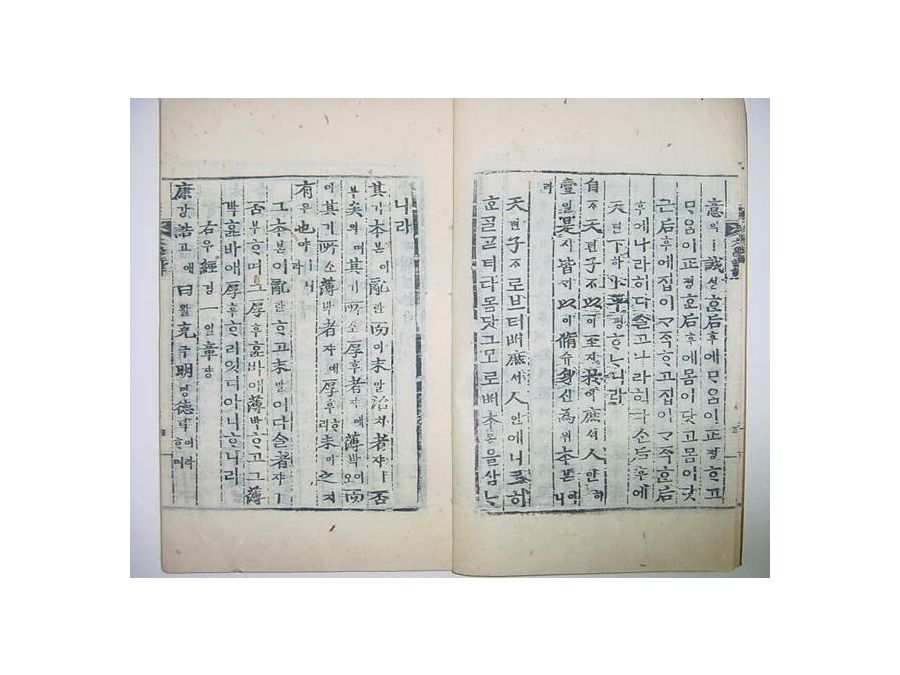 意의ㅣ誠셩ᄒᆞᆫ后후에ᄆᆞᄋᆞᆷ이正졍ᄒᆞ고
ᄆᆞᄋᆞᆷ이正졍ᄒᆞᆫ后후에몸이닷고몸이닷
근后후에집이ᄀᆞ즉ᄒᆞ고집이ᄀᆞ즉ᄒᆞᆫ后
후에나라히다ᄉᆞᆯ고나라히다ᄉᆞᆫ后후에
天텬下하ㅣ平평ᄒᆞᄂᆞ니라
自ᄌᆞ天텬子ᄌᆞ以이至지於어庶셔人인히
壹일是시皆ᄀᆡ以이脩슈身신為위本본이니
라
天텬子ᄌᆞ로브터ᄡᅥ庶셔人인에니르히
ᄒᆞᆫᄀᆞᆯᄀᆞ티다몸닷그모로ᄡᅥ本본을삼ᄂᆞ
니라
其기本본이亂란而이末말治치者쟈ㅣ否
부矣의며其기所소厚후者쟈애薄박이오而
이其기所소薄박者쟈애厚후ᄒᆞ리未미之지
有유也야ㅣ니라
그本본이亂란ᄒᆞ고末말이다ᄉᆞᆯ者쟈ㅣ
否부ᄒᆞ며그厚후ᄒᆞᆯ바애薄박ᄒᆞ고그薄
박ᄒᆞᆯ바애厚후ᄒᆞ리잇디아니ᄒᆞ니라
右우經경一일章쟝
康강誥고애曰왈克극明명德덕이라ᄒᆞ며